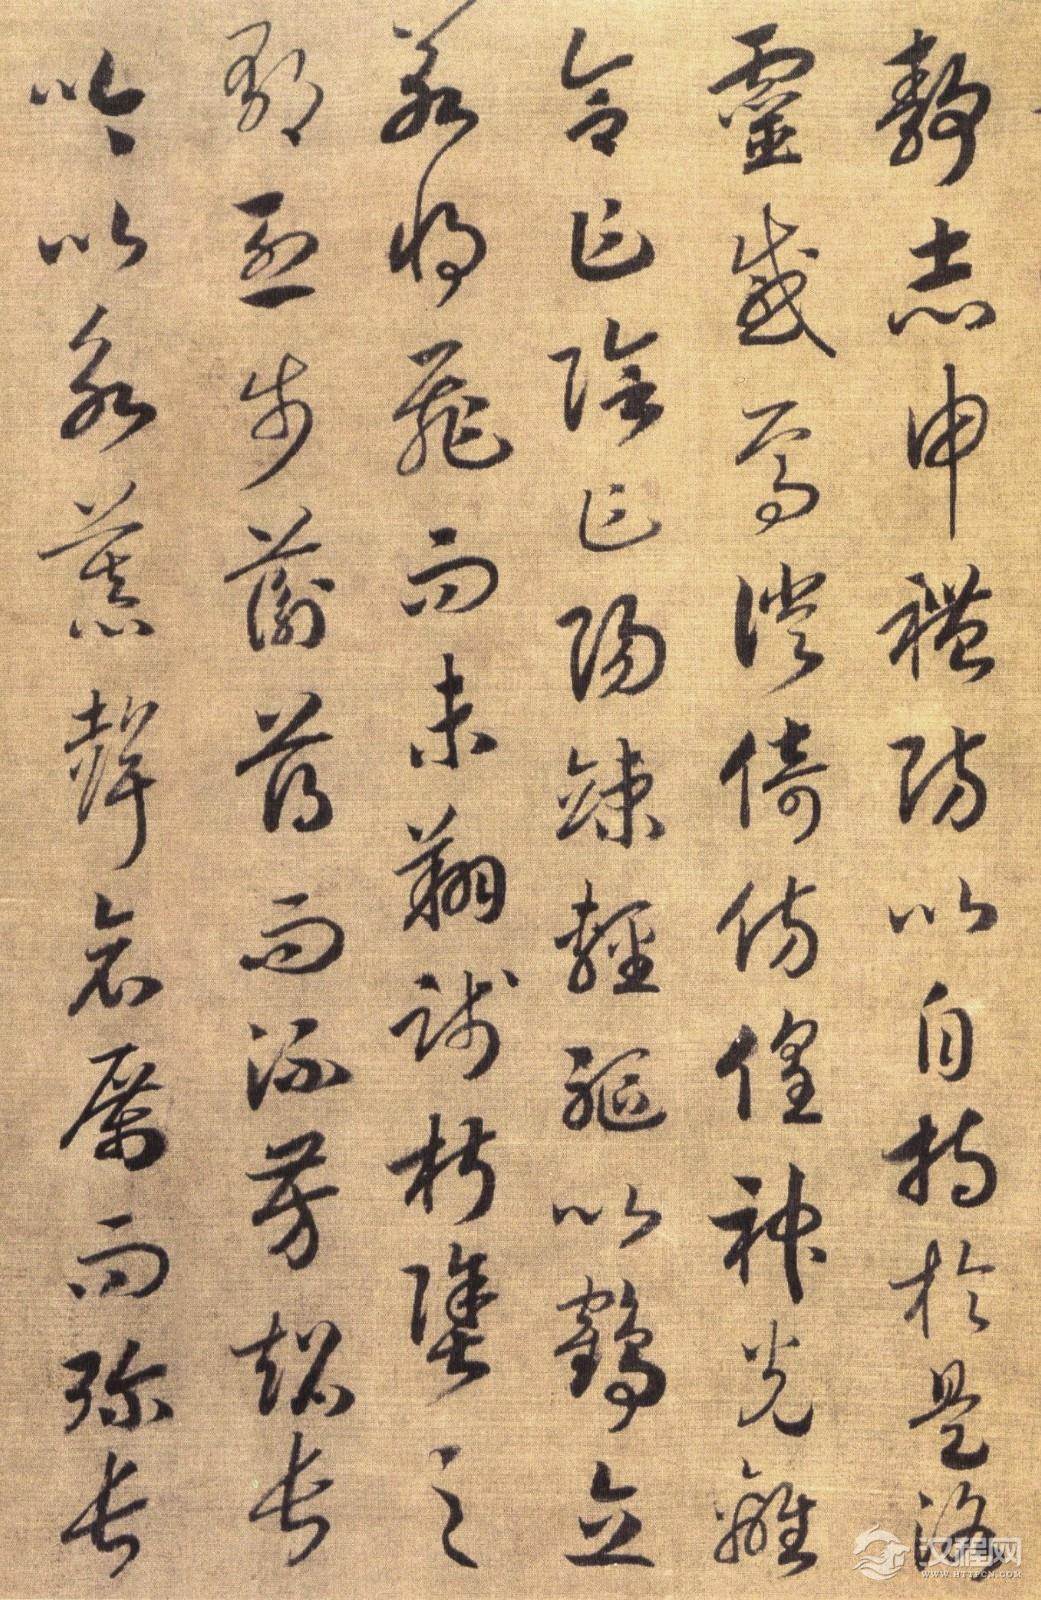 靜志申禮防以自持於是洛
靈感焉徙倚彷徨神光離
合乍陰乍陽竦輕軀以鶴立
若將飛而未翔踐椒塗之
郁烈步蘅薄而流芳超長
吟以永慕聲哀厲而彌長
汉程网
WWW.HTTPCN.COM